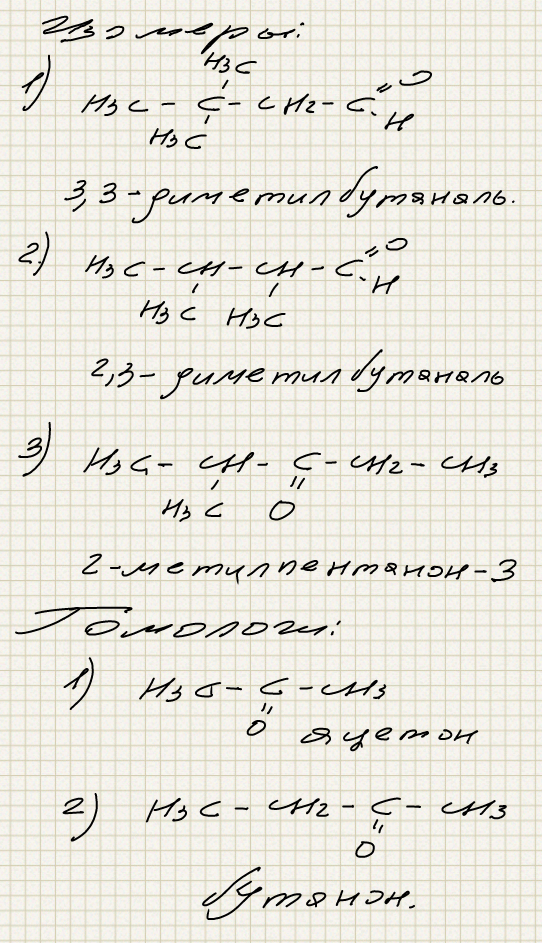 Изомеры:
1)
H3C
H3C - C - CH2 - C =O
H3C
-H
3,3-диметилбутаналь.
2)
H3C - CH - CH - C =O
-H
H3C H3C
2,3-диметилбутаналь
3)
H3C - CH - C - CH2 - CH3
H3C O
2-метилпентанон-3
Гомологи:
1)
H3C - C - CH3
O ацетон
2)
H3C - CH2 - C - CH3
O
бутанон.